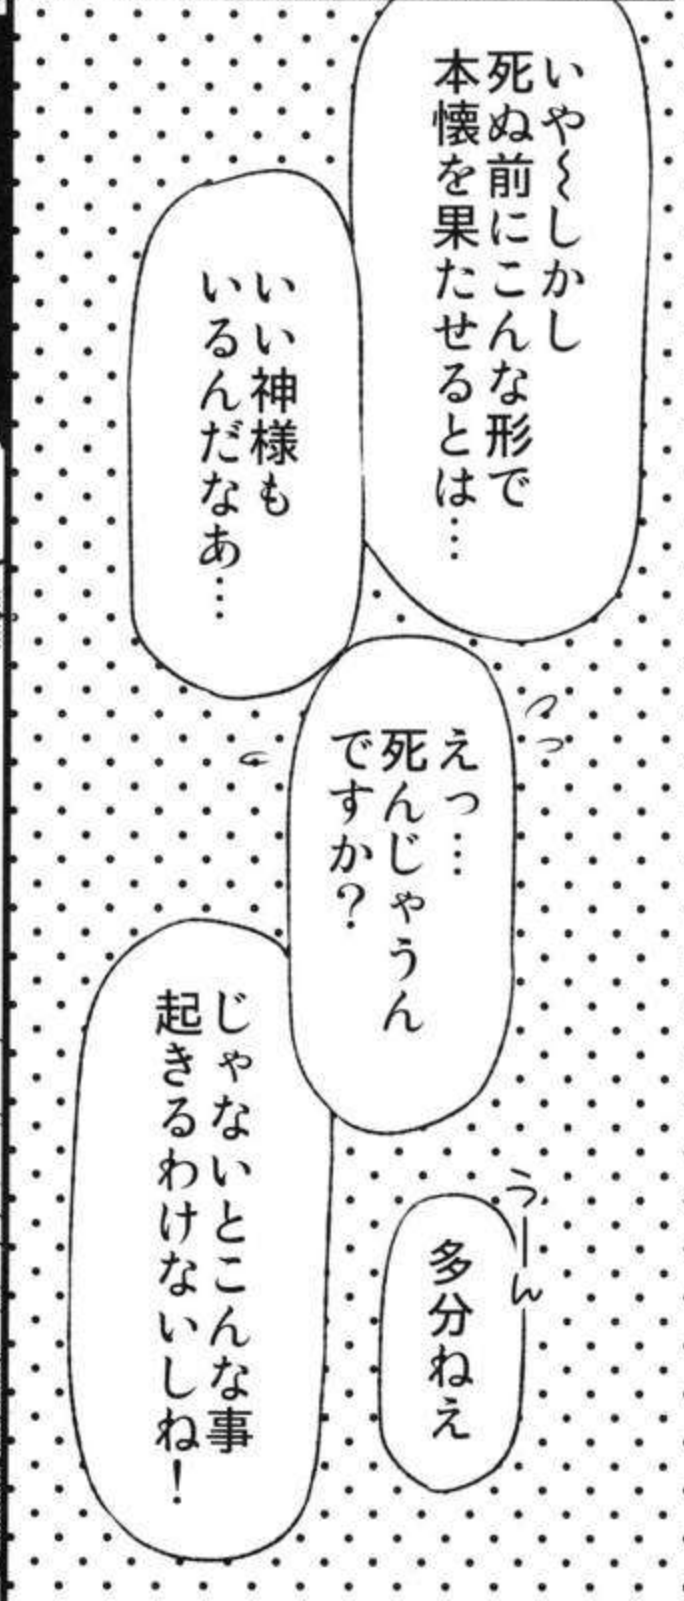 いや〜しかし
死ぬ前にこんな形で
本懐を果たせるとは…
いい神様も
いるんだなあ…
えっ…
死んじゃうん
ですか？
うーん
多分ねえ
じゃないとこんな事
起きるわけないしね！